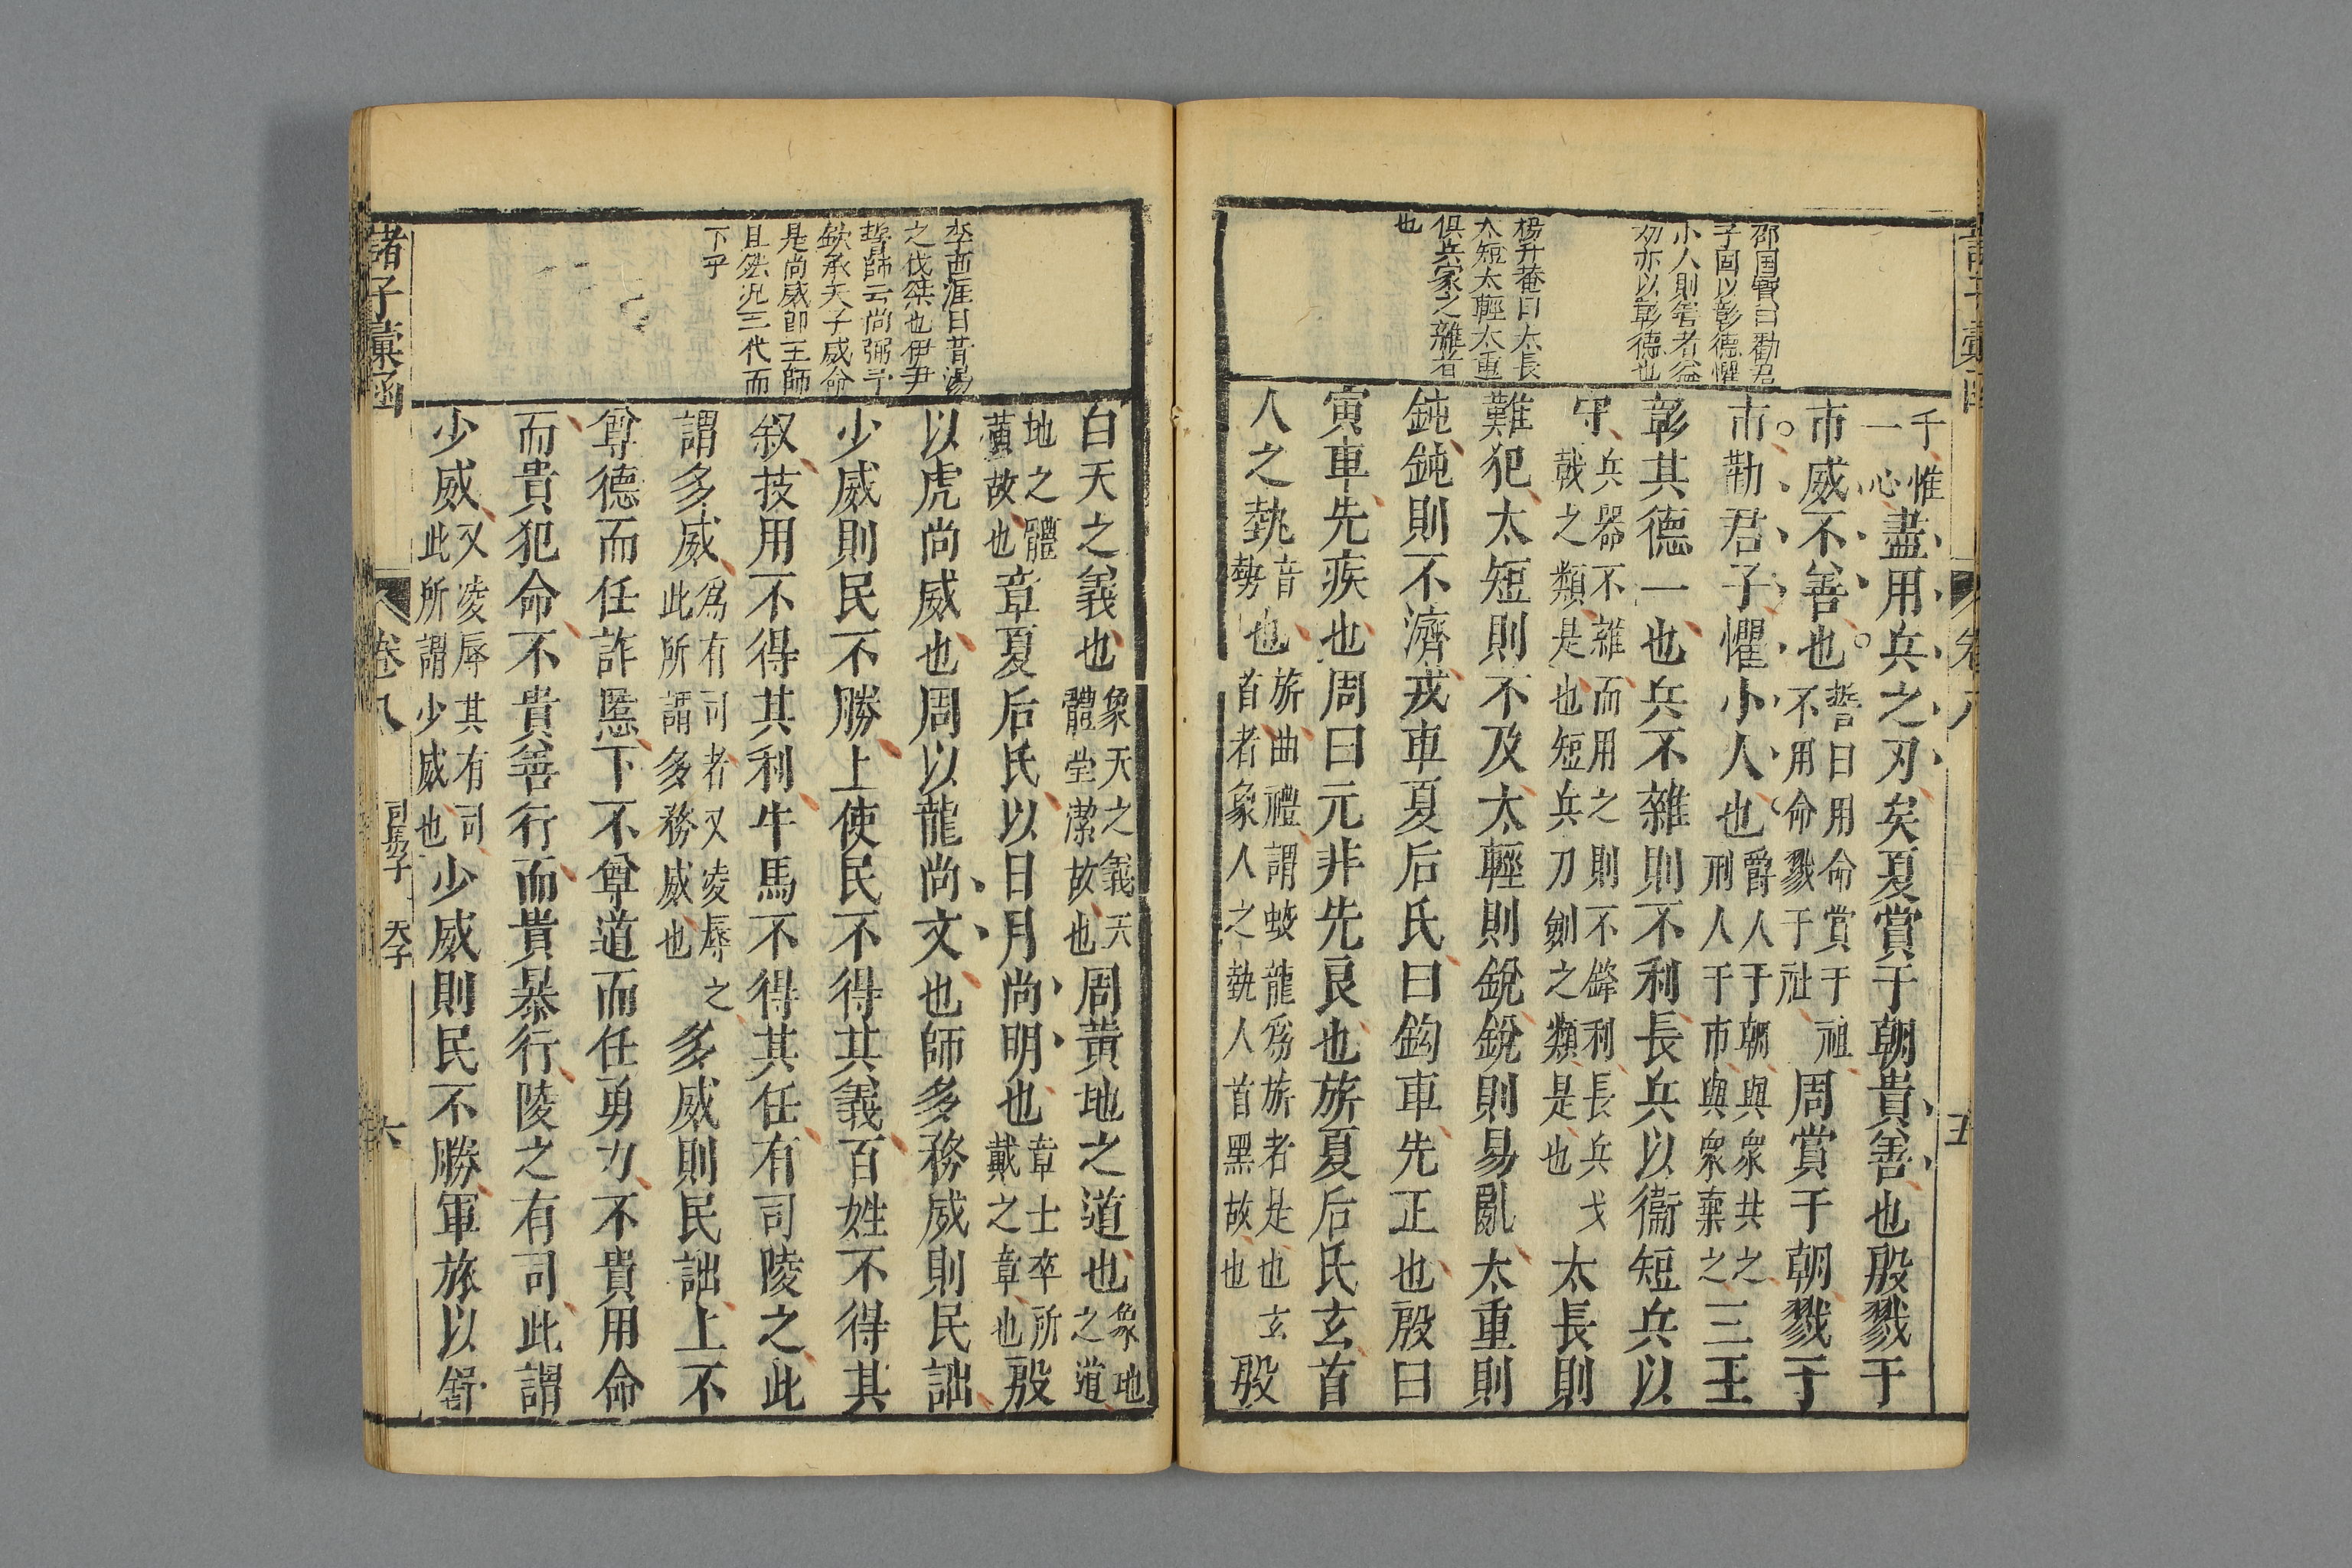 邵国賢曰勸君
子固以彰德懼
小人則管者益
劝亦以彰德也
楊升菴曰太長
太短太輕太重
俱兵家之雜者
也
千惟一心盡用兵之刃矣夏賞于朝貴善也殷戮于
市威不善也誓曰用命賞于祖不用命戮于社周賞于朝戮于
市勸君子懼小人也爵人于朝與衆共之刑人于市與衆棄之三王
彰其德一也兵不雜則不利長兵以衞短兵以
守兵器不雜而用之則不鋒利長兵戈戟之類是也短兵刀劍之類是也太長則
難犯太短則不及太輕則銳銳則易亂太重則
鈍鈍則不濟戎車夏后氏曰鈎車先正也殷曰
寅車先疾也周曰元非先良也旂夏后氏玄首
人之埶音勢也旂曲禮謂蛟龍爲旂者是也玄首者象人之埶人首黑故也殷
五
白天之義也象天之義天體瑩潔故也周黃地之道也象地之道
地之體黃故也章夏后氏以日月尚明也章士卒所戴之章也殷
以虎尚威也周以龍尚文也師多務威則民詘
少威則民不勝上使民不得其義百姓不得其
叙技用不得其利牛馬不得其任有司陵之此
謂多威爲有司者又凌辱之此所謂多務威也多威則民詘上不
尊德而任詐慝下不尊道而任勇力不貴用命
而貴犯命不貴善行而貴暴行陵之有司此謂
少威又凌辱其有司此所謂少威也少威則民不勝軍旅以舒
李西涯曰昔湯
之伐桀也伊尹
誓師云尚弼予
欽承天子威命
是尚威即王師
且然况三代而
下乎
諸子彙函
卷八
司馬子
天子
六